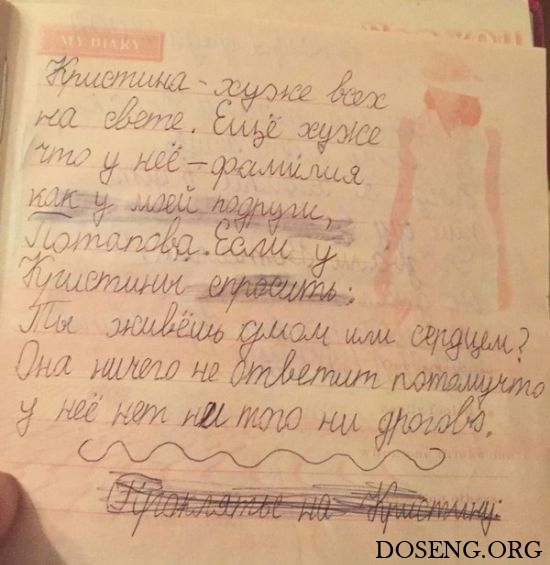 MY DIARY
Кристина - хуже всех
на свете. Ещё хуже
что у неё - фамилия
как у моей подруги,
Потапова. Если у
Кристины спросить:
Ты живёшь умом или сердцем?
Она ничего не ответит потомучто
у неё нет ни того ни дрогова.
Проклятье на Кристину:
DOSENG.ORG